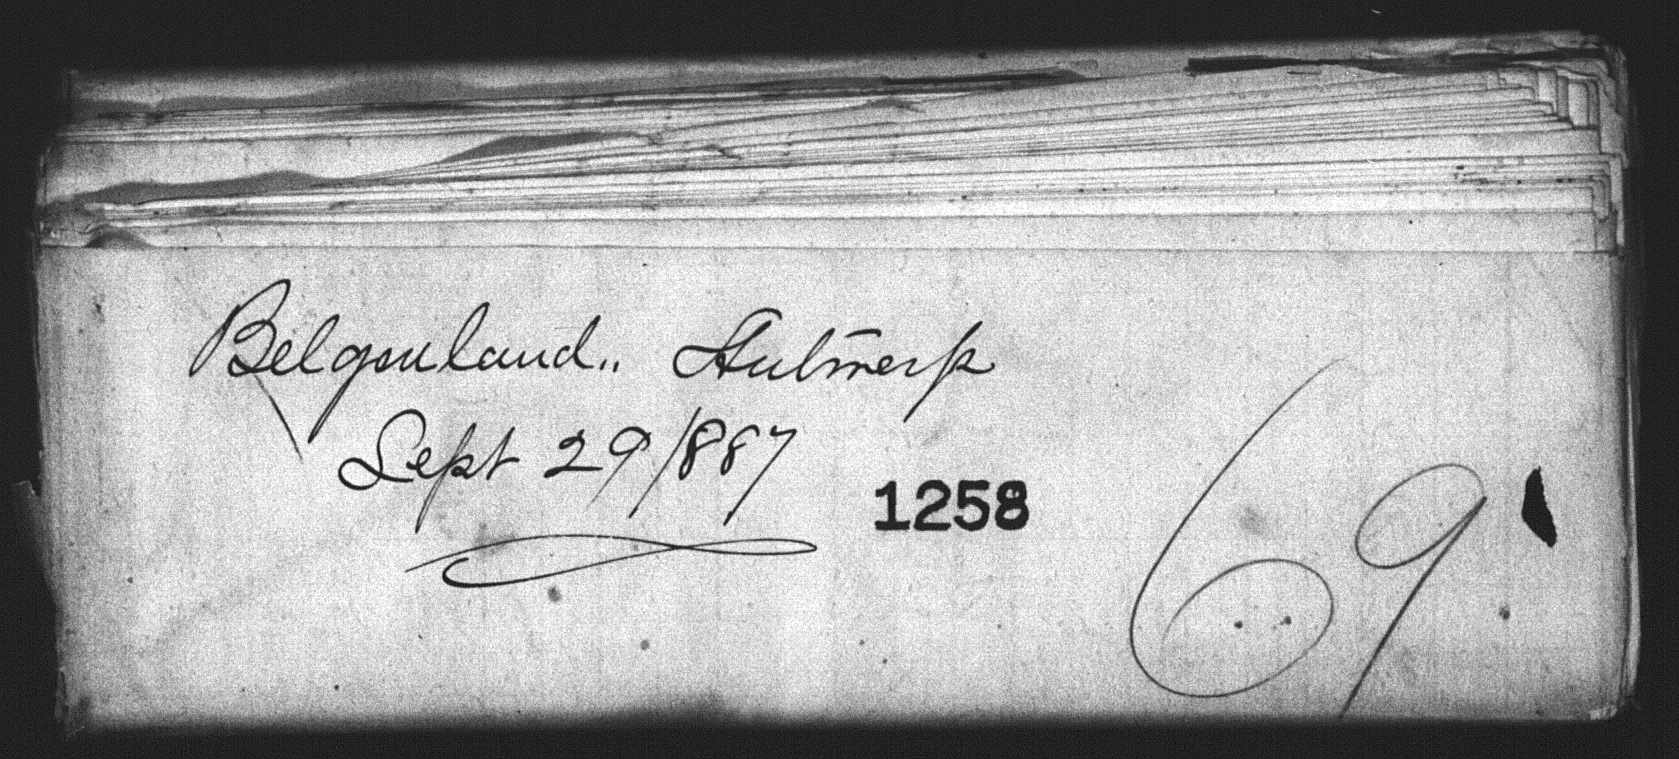 Belgenland.. Antwerp
Sept 29/887
1258
69